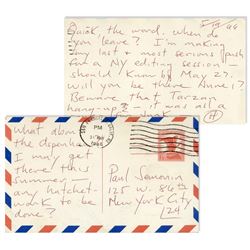 5/19/66
Quick, the word. when do
you leave? I'm making
my last & most serious push
for a NY editing session —
should know by May 27.
will you be there Anne?
Beware that Tarzan
hang-up? — it was all a
H
what about
the
I may
get there
this
summer —
any hatchet-
work to be
done?
PM
1966
Paul Semonin
125 W. 86th
New York City
24